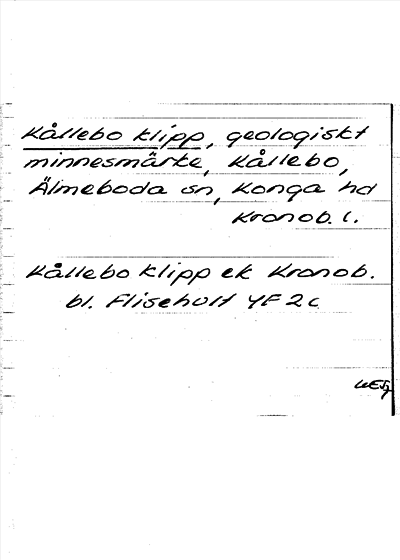 Kållebo klipp, geologiskt
minnesmärke, Kållebo,
Älmeboda sn, Konga hd
Kronob. l.
Kållebo klipp ek Kronob.
bl. Flisehult 4F 2c